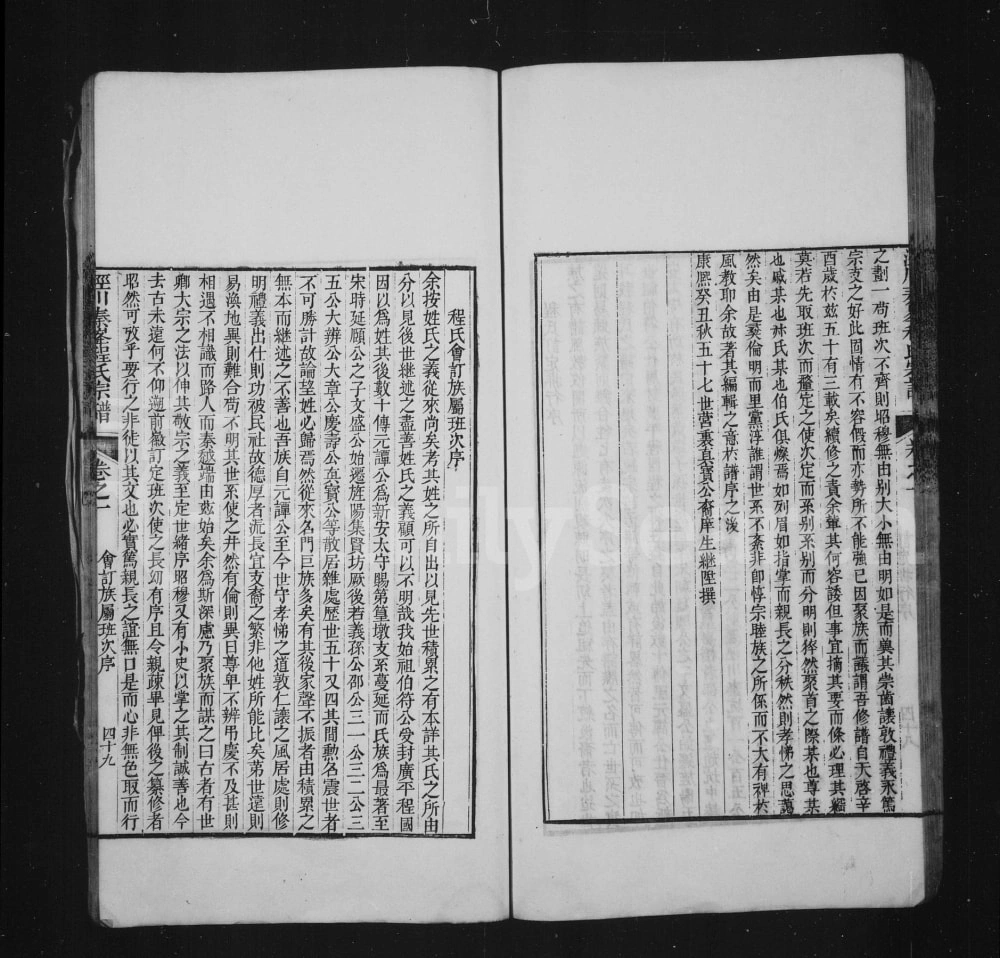 之劃一苟班次不齊則昭穆無由别大小無由明如是而冀其崇齒讓敦禮義永篤
宗支之好此固情有不容假而亦勢所不能強已因聚族而議謂吾修譜自天啓辛
酉歲扵兹五十有三載矣續修之責余輩其何容諉但事宜摘其要而條必理其緒
莫若先取班次而釐定之使次定而系别系别而分明則猝然聚首之際某也尊某
也戚某也姊氏某也伯氏俱燦焉如列眉如指掌而親長之分秩然則孝悌之思藹
然矣由是彛倫明而里黨淳誰謂世系不紊非卽惇宗睦族之所係而不大有裨扵
風教耶余故著其編輯之意扵譜序之後
康熈癸丑秋五十七世營裏真寶公裔庠生繼陞撰
程氏會訂族屬班次序
余按姓氏之義從來尚矣考其姓之所自出以見先世積累之有本詳其氏之所由
分以見後世継述之盡善姓氏之義顧可以不明哉我始祖伯符公受封廣平程國
因以爲姓其後數十傳元譚公爲新安太守賜第篁墩支系蔓延而氏族爲最著至
宋時延願公之子文盛公始遷旌陽集賢坊厥後若義孫公邵公三一公三二公三
五公大辨公大章公慶壽公真寳公等散居雜處歷世五十又四其間勲名震世者
不可勝計故論望姓必歸焉然從來名門巨族多矣有其後家聲不振者由積累之
無本而継述之不善也吾族自元譚公至今世守孝悌之道敦仁讓之風居處則修
明禮義出仕則功被民社故德厚者流長宜支裔之繁非他姓所能比矣第世遠則
易渙地異則難合苟不明其世系使之井然有倫則異日尊卑不辨吊慶不及甚則
相遇不相識而路人而秦越端由兹始矣余爲斯深慮乃聚族而謀之曰古者有世
卿大宗之法以伸其敬宗之義至定世緒序昭穆又有小史以掌之其制誠善也今
去古未遠何不仰遡前徽訂定班次使之長幼有序且令親疎畢見俾後之纂修者
昭然可攷乎要行之非徒以其文也必實篤親長之誼無口是而心非無色取而行
涇川秦峯程氏宗譜 卷之一 會訂族屬班次序 四十九